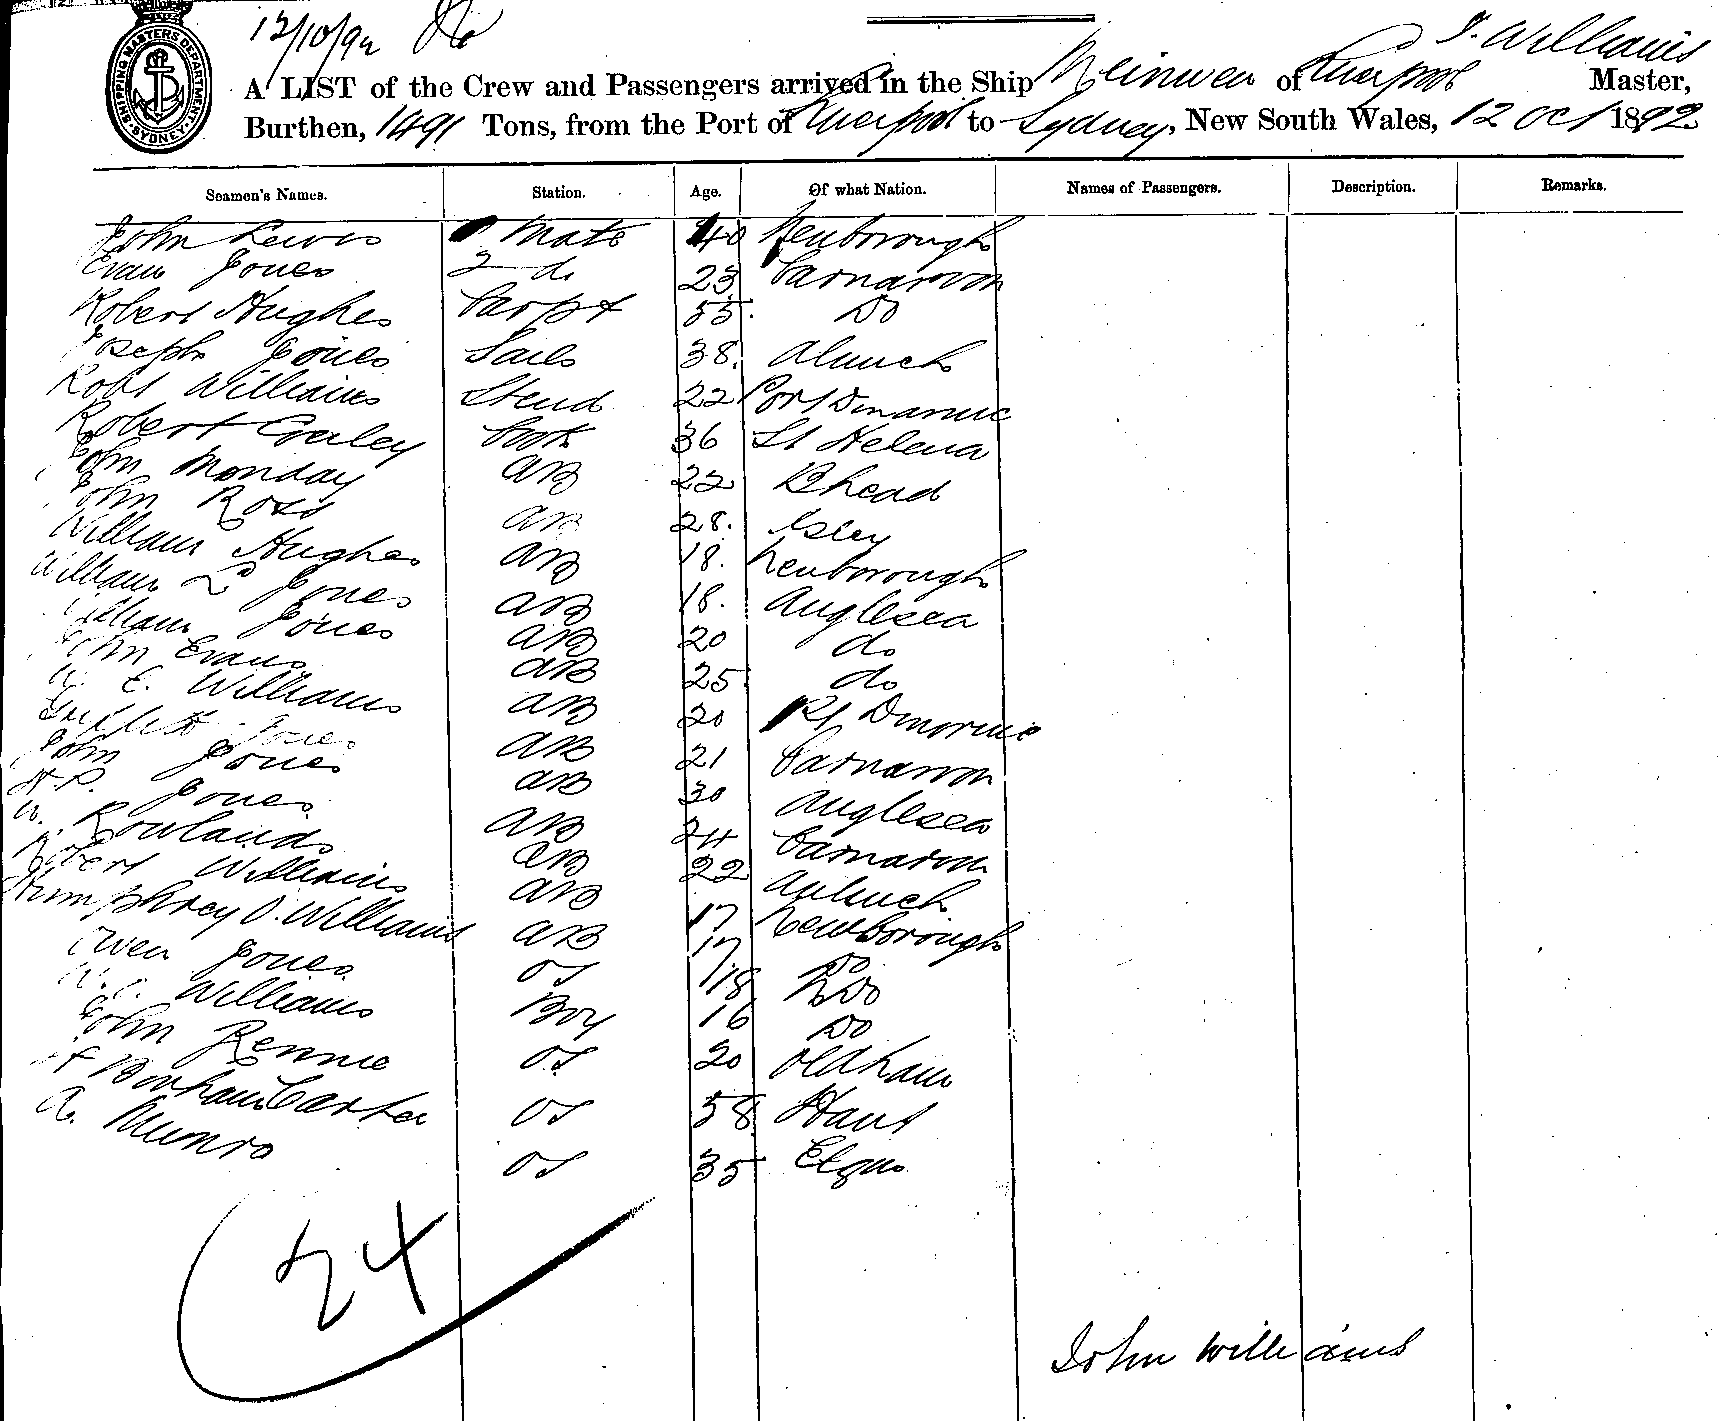 12/10/92
J. Williams
SHIPPING MASTERS DEPARTMENT SYDNEY
A LIST of the Crew and Passengers arrived in the Ship Meinwen of Liverpool Master,
Burthen, 1491 Tons, from the Port of Liverpool to Sydney, New South Wales, 12 Oct 1892
Seamen's Names. Station. Age. Of what Nation. Names of Passengers. Description. Remarks.
John Lewis Mate 40 Newborough
Evan Jones 2 do 23 Carnarvon
Robert Hughes Carpt 55 Do
Joseph Jones Sails 38 Amlwch
Robt Williams Stewd 22 Port Dinorwic
Robert Croley Cook 36 St Helena
John Monday AB 22 Bhead
John Ross AB 28 Isley
William Hughes AB 18 Newborough
William L Jones AB 18 Anglesea
William Jones AB 20 do
John Evans AB 25 do
W. E. Williams AB 20 Pt Dinorwic
Griffith Jones AB 21 Carnarvon
John Jones AB 30 Anglesea
H. P. Jones AB 24 Carnarvon
W. Rowlands AB 22 Amlwch
Robert Williams AB 17 Newborough
Humphrey O. Williams AB 17 Do
Owen Jones OS 18 Do
Williams Boy 16 Do
John Rennie OS 20 Oldham
Bonham Carter OS 58 Hant
A. Munro OS 35 Elgin
24
John Williams